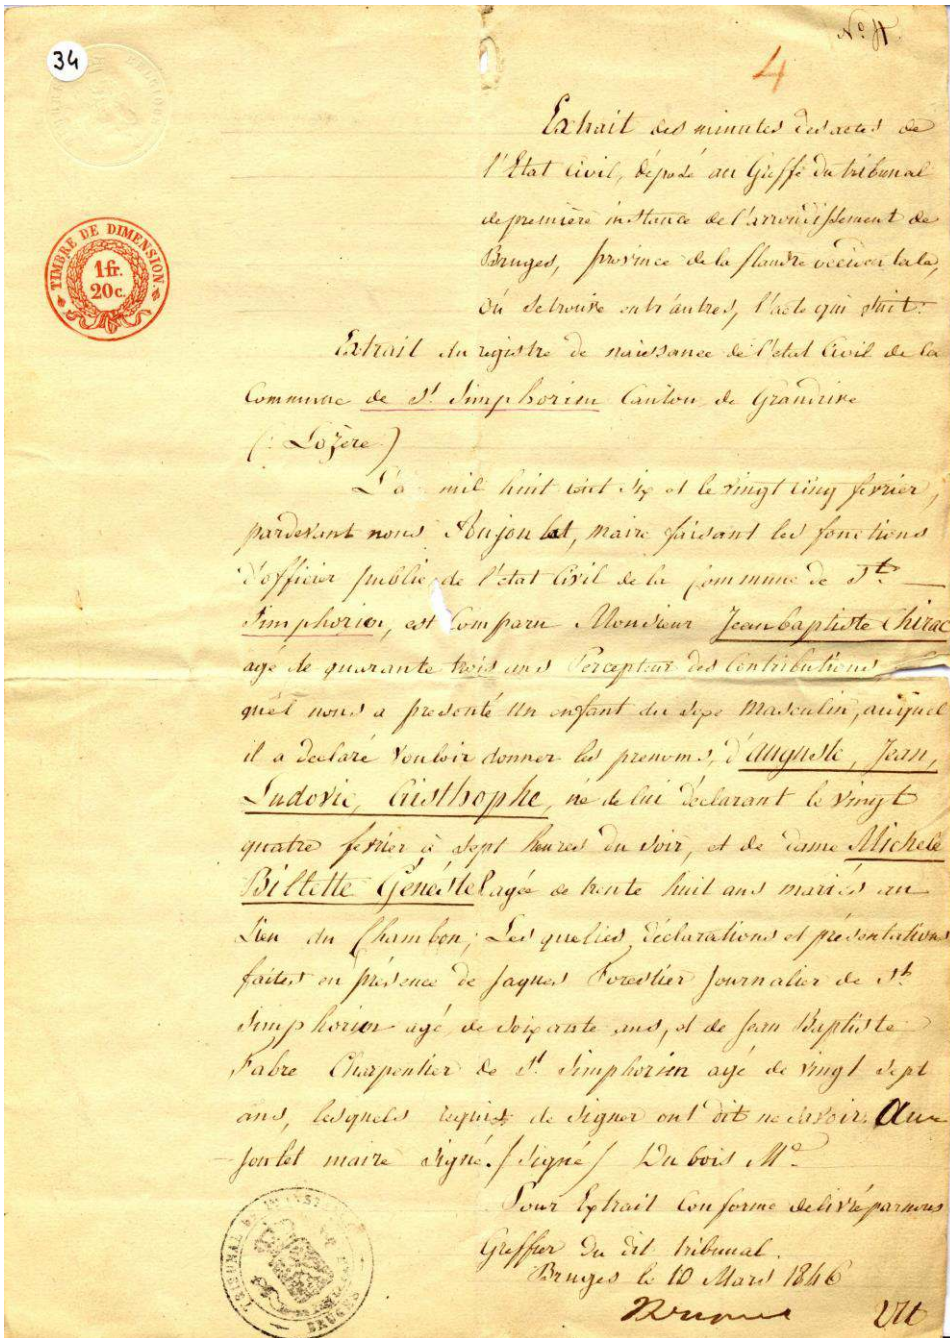 34
Nº 4
4
TIMBRE DE DIMENSION.
1 fr.
20c.
Extrait des minutes des actes de
l'Etat Civil, déposé au Greffe du tribunal
de première instance de l'arrondissement de
Bruges, province de la flandre occidentale,
où se trouve entr'autres, l'acte qui suit:
Extrait du registre de naissance de l'etat Civil de la
Commune de St. Simphorien Canton de Grandrive
(: Lozère )
L'a mil huit cent six et le vingt cinq fevrier,
pardevant nous Anjoulat, maire faisant les fonctions
d'officier public de l'etat Civil de la Commune de St.
Simphorien, est Comparu Monsieur Jean baptiste Chirac
agé de quarante trois ans Percepteur des Contributions
quel nous a presenté un enfant du sexe Masculin, auquel
il a declaré vouloir donner les prenoms, d'Auguste, Jean,
Ludovic, Cristhophe, né de lui déclarant le vingt
quatre fevrier à sept heures du soir, et de dame Michele
Billette Généstel agée de trente huit ans mariés au
Lieu du Chambon; Les quelles déclarations et présentations
faites en présence de Jaques Forestier Journalier de St.
Simphorien agé de soixante ans, et de Jean Baptiste
Fabre Charpentier de St. Simphorien agé de vingt sept
ans, lesquels requis de signer ont dit ne savoir. Au=
joulet maire signé. / signé / Dubois Me.
Pour Extrait Conforme délivré par nous
Greffier du dit tribunal.
Bruges le 10 Mars 1846
TRIBUNAL DE INSTANCE
BRUGES